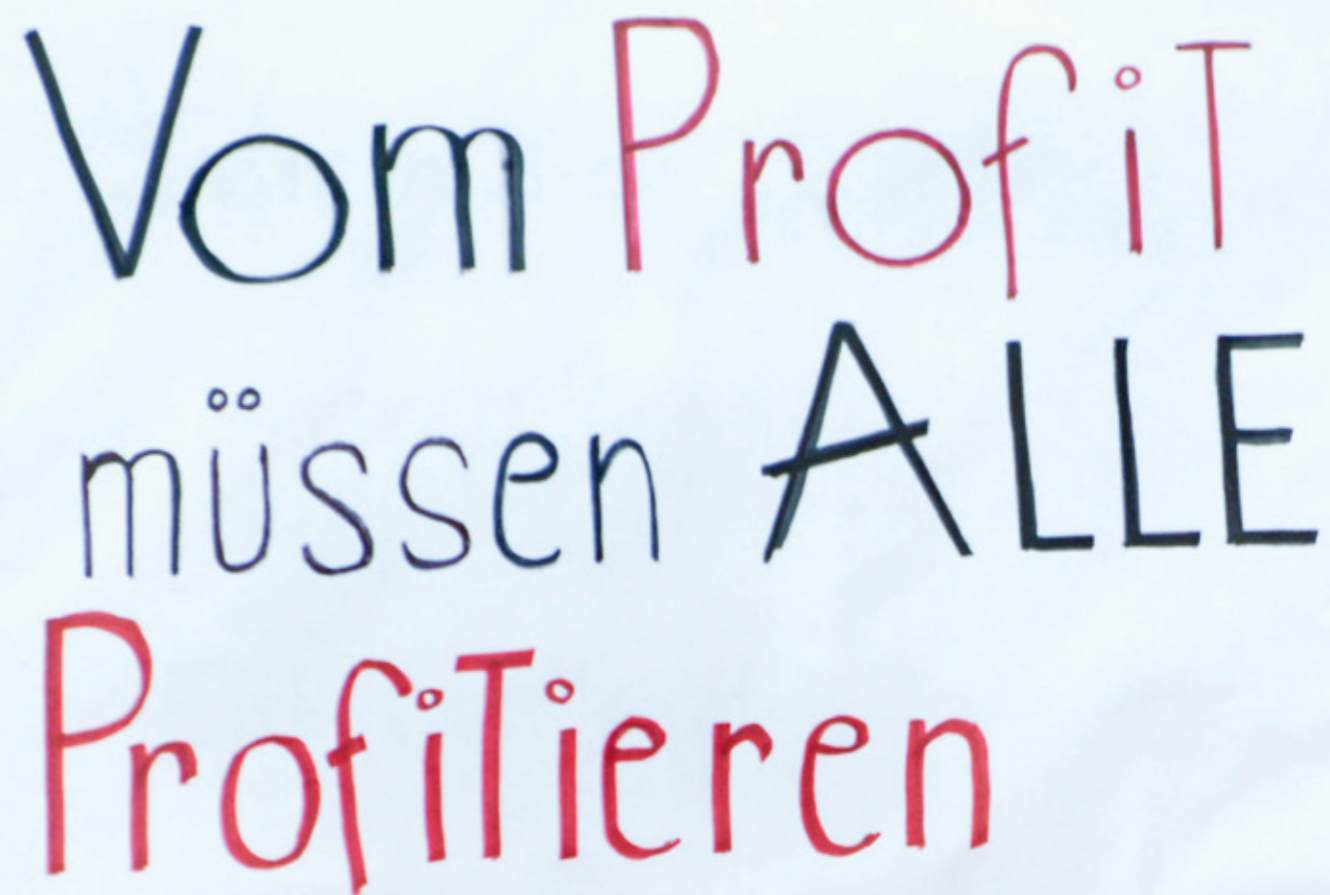 Vom ProfiT
müssen ALLE
ProfiTieren